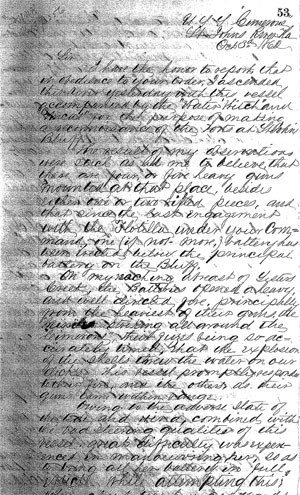 53
U.S.S. Cimerone
St. Johns River Fla
Oct 3d 1862
Sir
I have the honor to report that
in obedience to your order I ascended
this river yesterday with this vessel
accompanied by the Water Witch and
Uncas for the purpose of making
a reconnoisance of the Forts at St Johns
Bluff.
The result of my observations
were such as led me to believe, that
there are four or five heavy guns
mounted at that place, besides
either two or three rifled pieces, and
that since the last engagement
with the Flotilla under your Com-
mand, one (if not more) battery has
been built besides the principal
battery on the Bluff.
On my reaching abreast of Sisters
Creek, the batteries opened a heavy
and well directed fire, principally
from the heaviest of their guns, the
striking all around the
Cimerone, their fuzes being so ac-
curately timed, that the explosion
of the shells threw the water on our
decks. This vessel promptly respon-
ded to their fire, and the others as their
guns came within range.
Owing to the adverse state of
the tide and wind, combined with
the bad steering qualities of this
vessel, great difficulty was experi-
enced in manoeuvering her, so as
to bring all her battery in full
which, while attempting this,